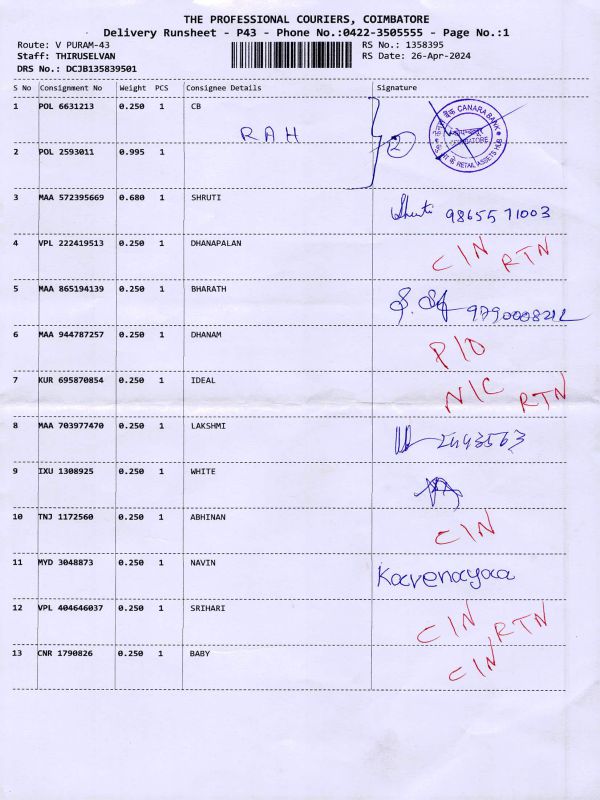 THE PROFESSIONAL COURIERS, COIMBATORE
Delivery Runsheet - P43 - Phone No.:0422-3505555 - Page No.:1
Route: V PURAM-43
Staff: THIRUSELVAN
DRS No.: DCJB135839501
RS No.: 1358395
RS Date: 26-Apr-2024
S No Consignment No Weight PCS Consignee Details Signature
1 POL 6631213 0.250 1 CB
RAH
2 POL 2593011 0.995 1
2
CANARA BANK
COIMBATORE
RETAIL ASSETS HUB
3 MAA 572395669 0.680 1 SHRUTI Shruti 9865571003
4 VPL 222419513 0.250 1 DHANAPALAN CIN RTN
5 MAA 865194139 0.250 1 BHARATH
6 MAA 944787257 0.250 1 DHANAM P/O
7 KUR 695870854 0.250 1 IDEAL N/C RTN
8 MAA 703977470 0.250 1 LAKSHMI
9 IXU 1308925 0.250 1 WHITE
10 TNJ 1172560 0.250 1 ABHINAN CIN
11 MYD 3048873 0.250 1 NAVIN Kavenayaa
12 VPL 404646037 0.250 1 SRIHARI CIN, RTN
13 CNR 1790826 0.250 1 BABY CIN